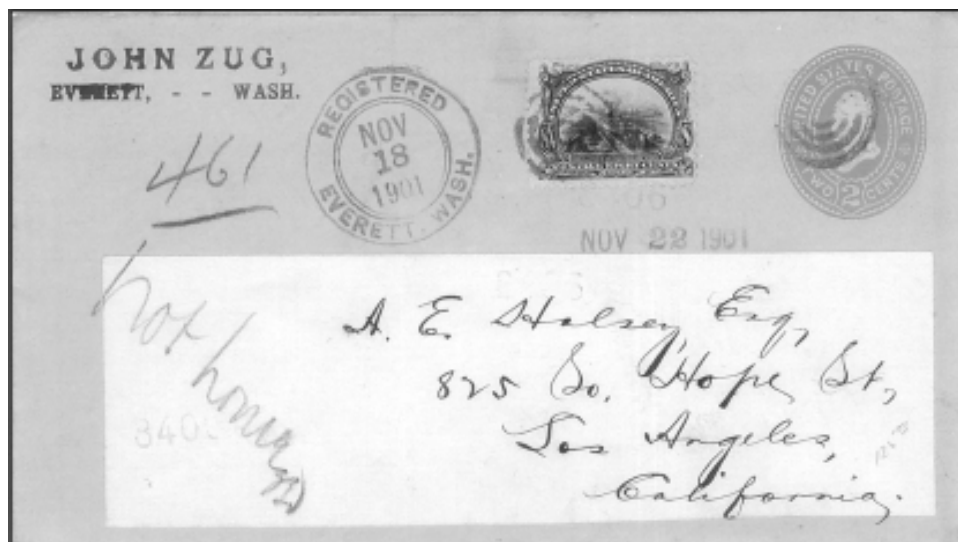 JOHN ZUG,
EVERETT, - - WASH.
461
REGISTERED
NOV
18
1901
EVERETT, WASH.
UNITED STATES POSTAGE
TWO 2 CENTS
NOV 22 1901
not home
A. E. Halsey Esq,
825 So. Hope St,
Los Angeles,
California.